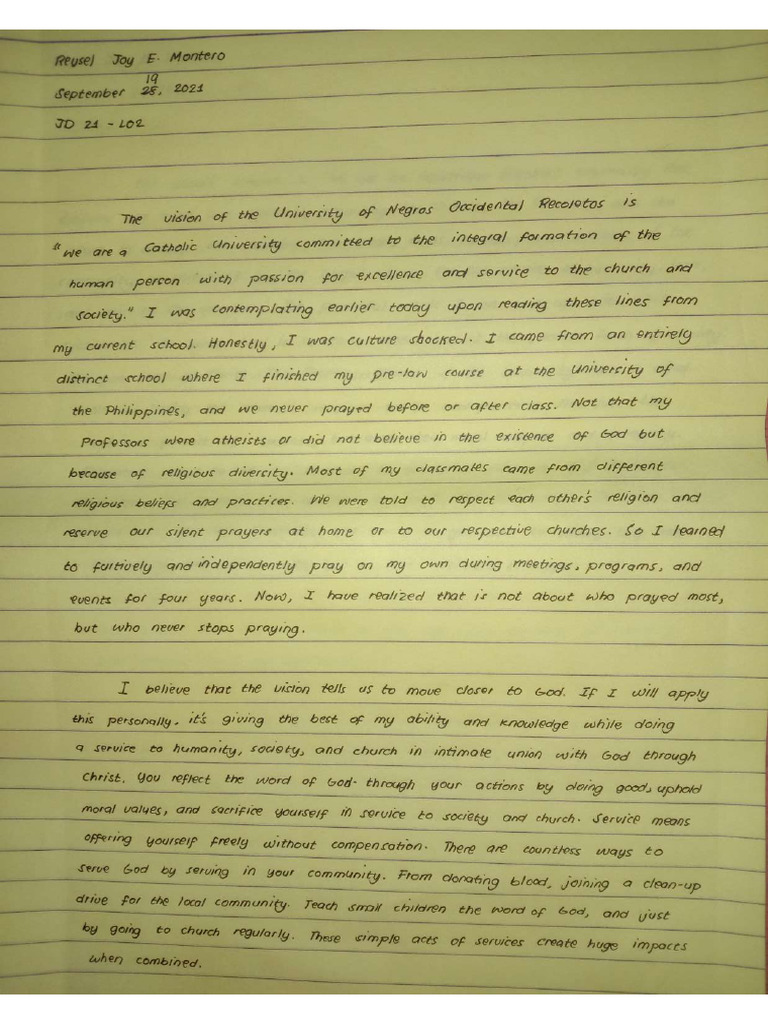 Reusel Joy E. Montero
19
September 28, 2021
JD 21 - L02
The vision of the University of Negros Occidental Recoletos is
"We are a Catholic University committed to the integral formation of the
human person with passion for excellence and service to the church and
society." I was contemplating earlier today upon reading these lines from
my current school. Honestly, I was culture shocked. I came from an entirely
distinct school where I finished my pre-law course at the University of
the Philippines, and we never prayed before or after class. Not that my
Professors were atheists or did not believe in the existence of God but
because of religious diversity. Most of my classmates came from different
religious beliefs and practices. We were told to respect each other's religion and
reserve our silent prayers at home or to our respective churches. So I learned
to furtively and independently pray on my own during meetings, programs, and
events for four years. Now, I have realized that is not about who prayed most,
but who never stops praying.
I believe that the vision tells us to move closer to God. If I will apply
this personally, it's giving the best of my ability and knowledge while doing
a service to humanity, society, and church in intimate union with God through
Christ. You reflect the word of God through your actions by doing good, uphold
moral values, and sacrifice yourself in service to society and church. Service means
offering yourself freely without compensation. There are countless ways to
serve God by serving in your community. From donating blood, joining a clean-up
drive for the local community. Teach small children the word of God, and just
by going to church regularly. These simple acts of services create huge impacts
when combined.